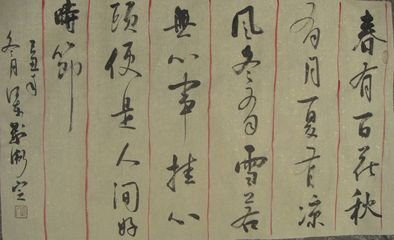 春有百花秋
有月夏有凉
風冬有雪若
無心事挂心
頭便是人间好
時節
冬月